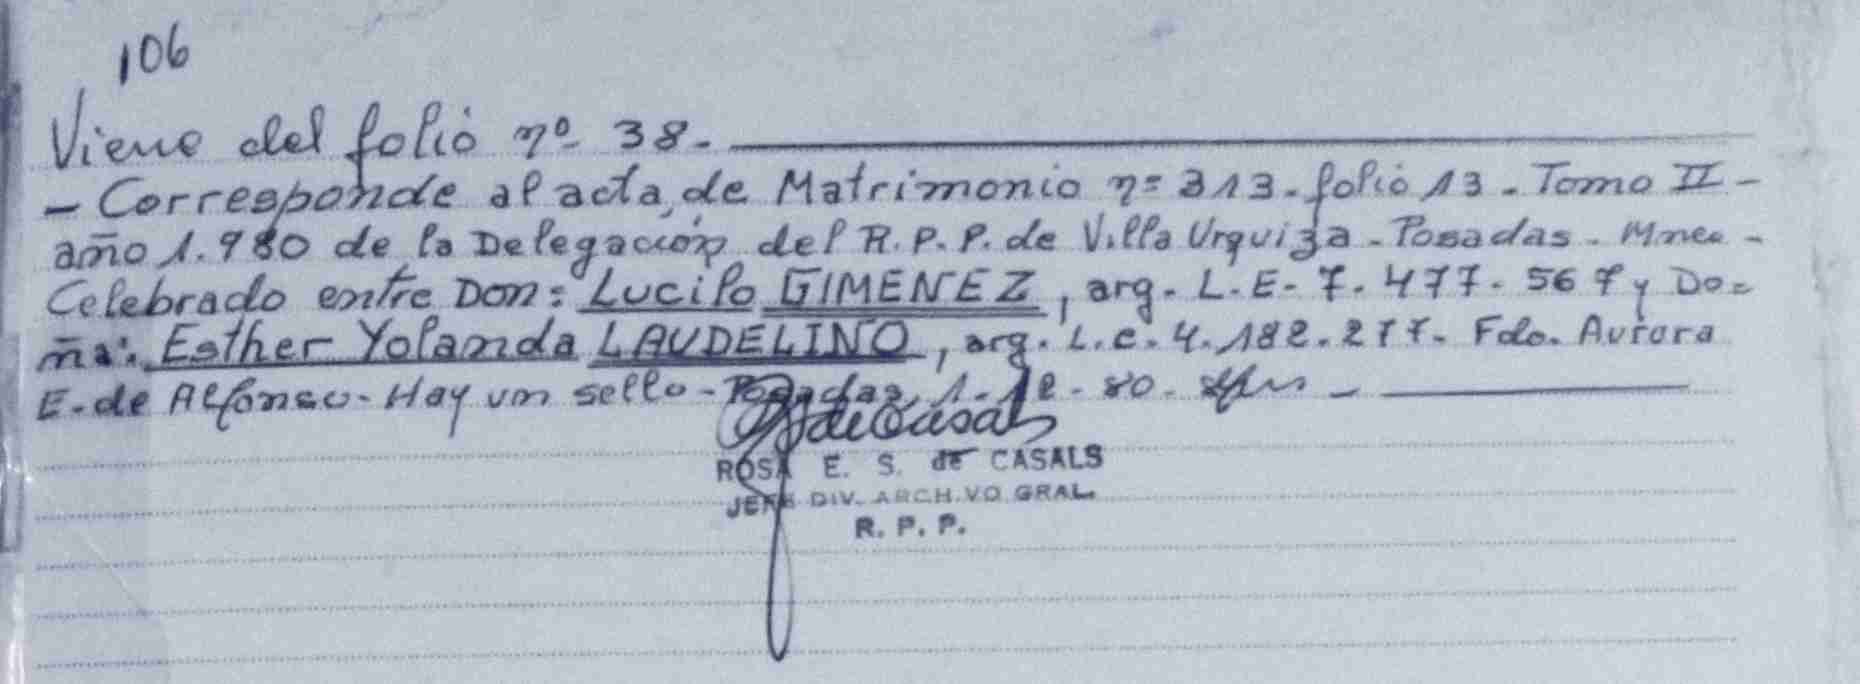 106
Viene del folio nº 38.
- Corresponde al acta, de Matrimonio nº 313. folio 13. Tomo II -
año 1.980 de la Delegación del R.P.P. de Villa Urquiza - Posadas - Mnes -
Celebrado entre Don: Lucilo GIMENEZ, arg. L.E. 7.477.567 y Do=
ña: Esther Yolanda LAUDELINO, arg. L.C. 4.182.277. Fdo. Aurora
E. de Alfonso - Hay un sello - Posadas, 1-12-80.
ROSA E. S. de CASALS
JEFE DIV. ARCHIVO GRAL.
R. P. P.